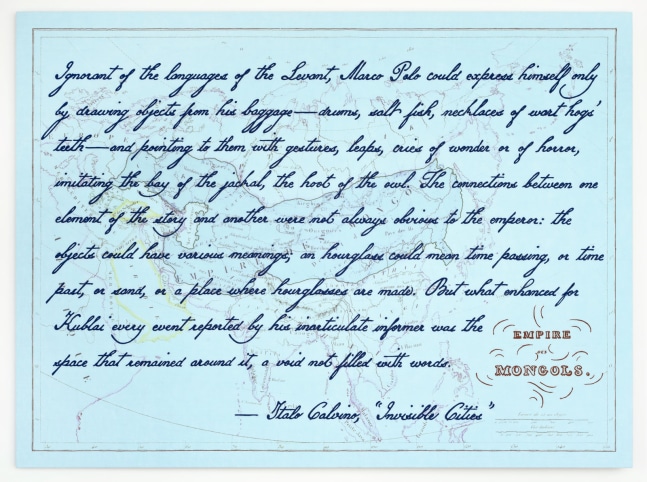 Ignorant of the languages of the Levant, Marco Polo could express himself only
by drawing objects from his baggage—drums, salt fish, necklaces of wart hogs'
teeth—and pointing to them with gestures, leaps, cries of wonder or of horror,
imitating the bay of the jackal, the hoot of the owl. The connections between one
element of the story and another were not always obvious to the emperor: the
objects could have various meanings; an hourglass could mean time passing, or time
past, or sand, or a place where hourglasses are made. But what enhanced for
Kublai every event reported by his inarticulate informer was the
space that remained around it, a void not filled with words.
— Italo Calvino, "Invisible Cities"
EMPIRE
DES
MONGOLS.